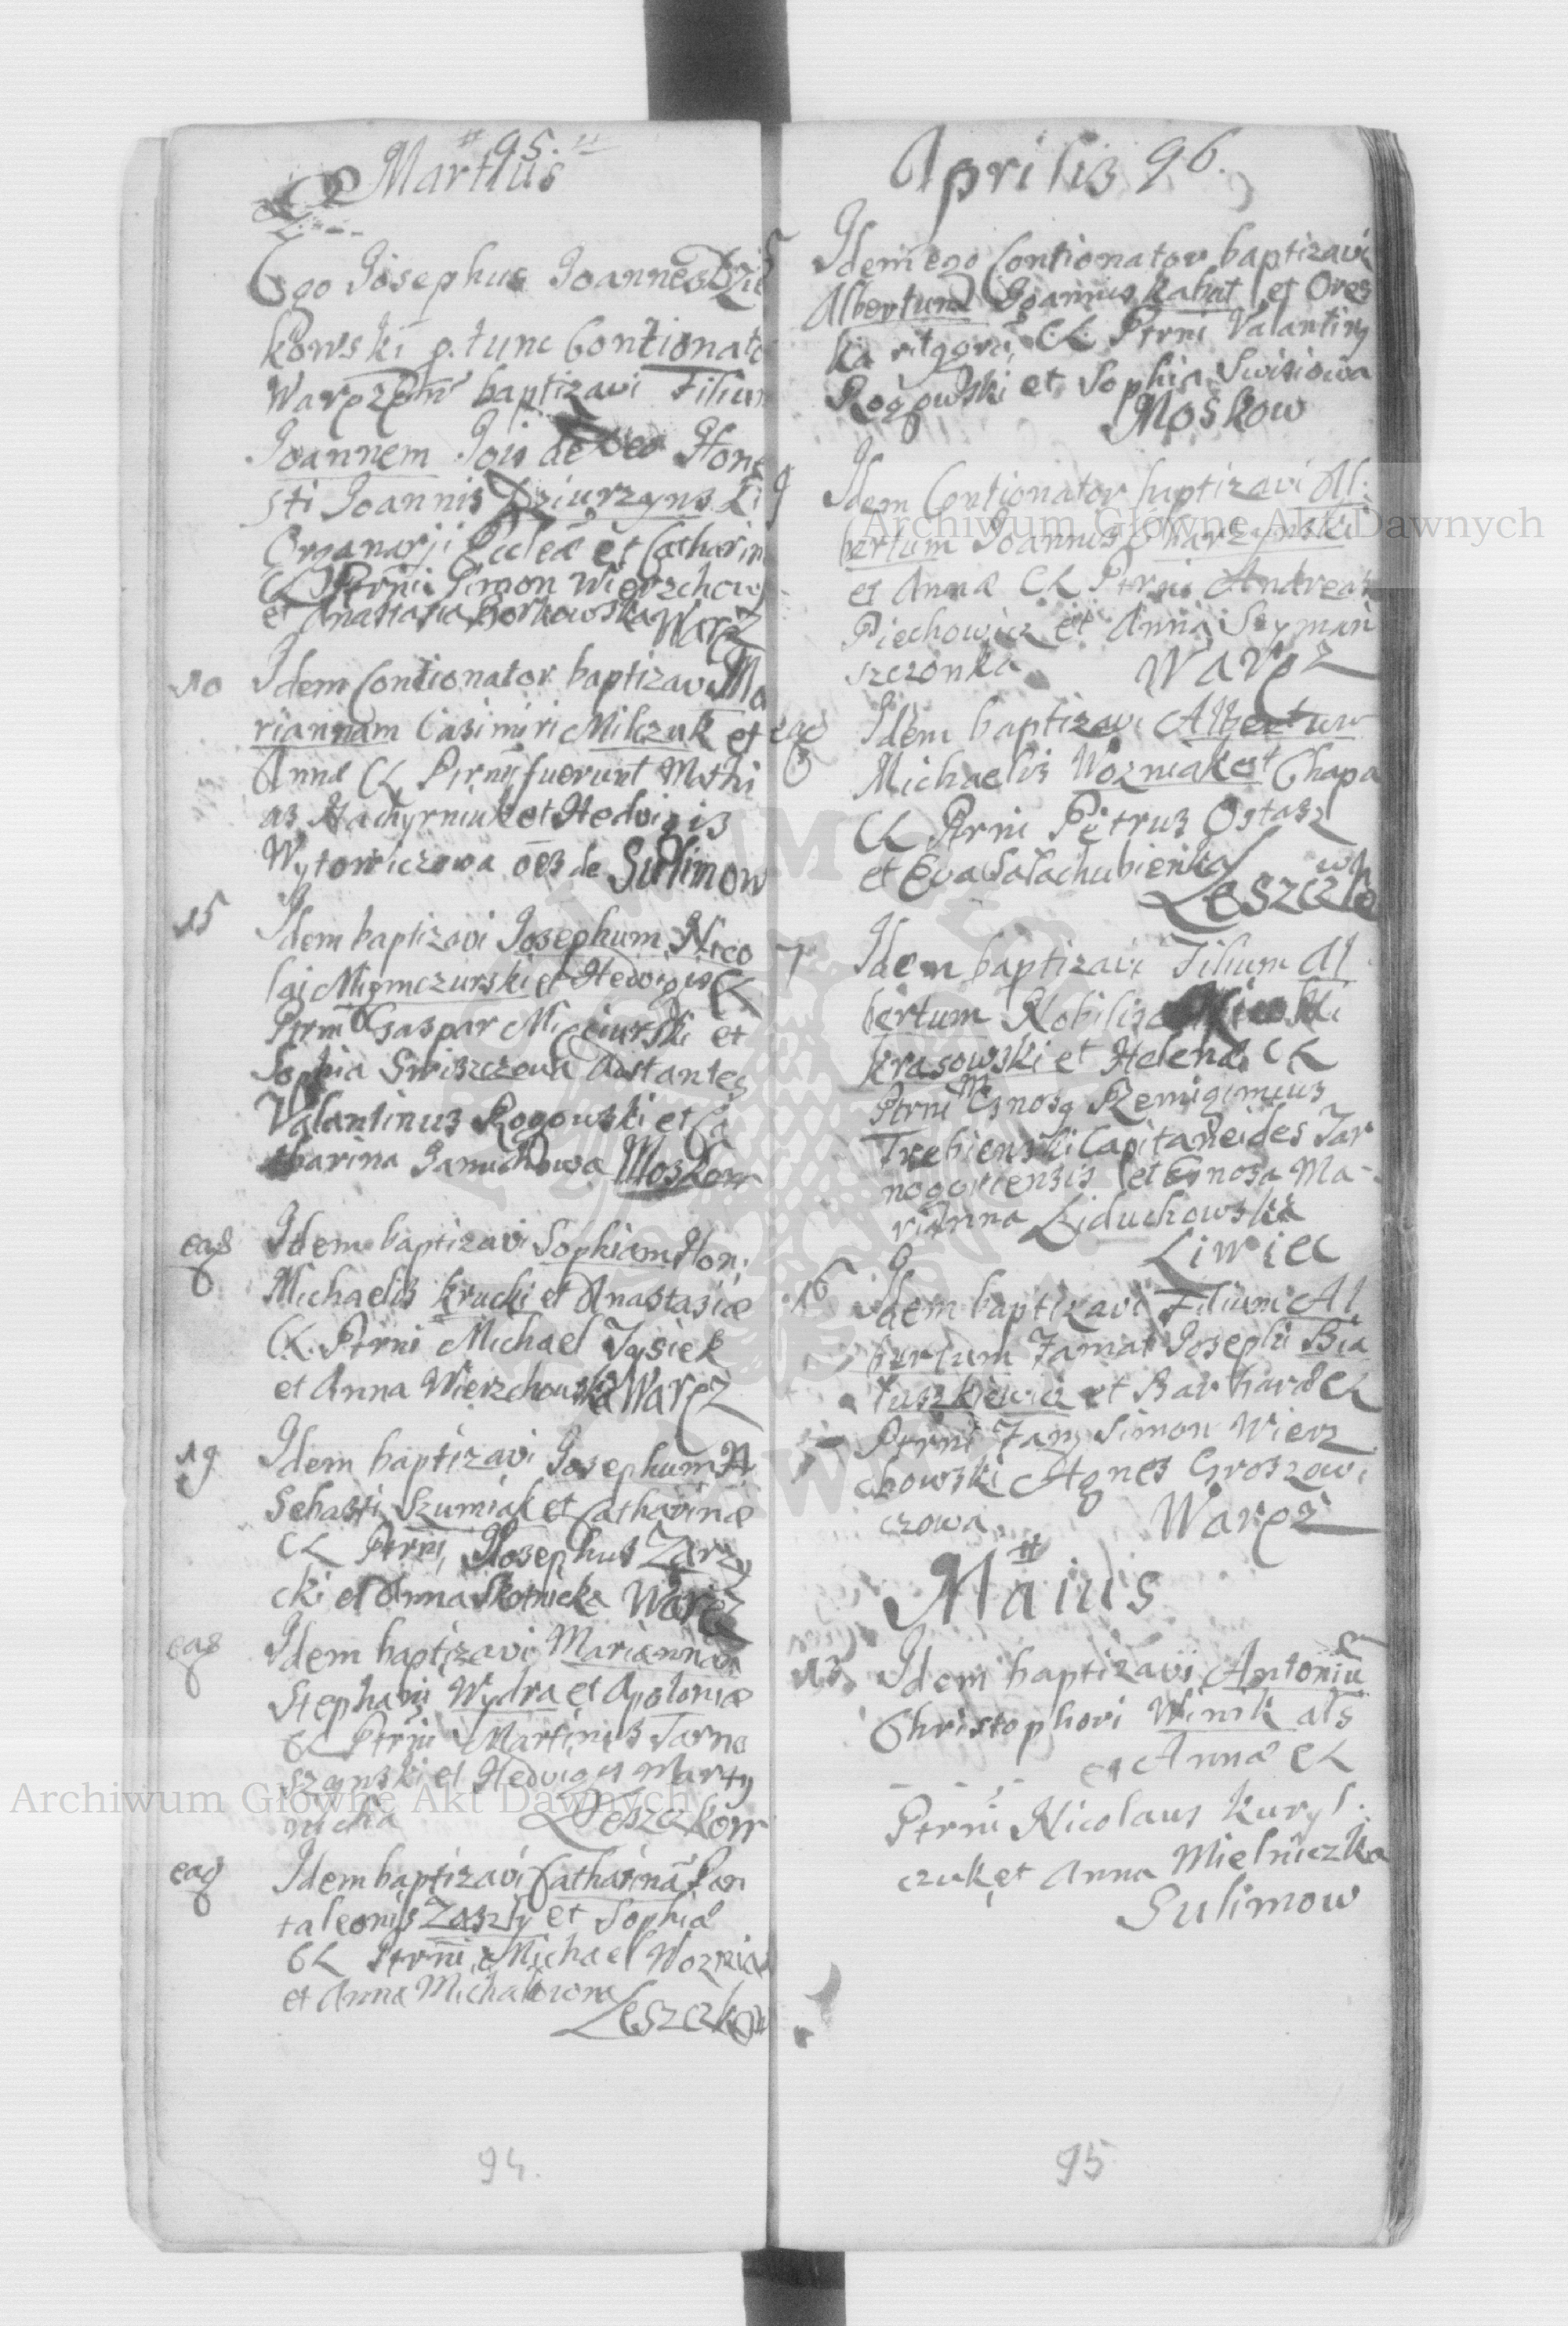 95.
Martius
Ego Josephus Joannes
kowski p. tunc Contionato
baptizavi Filium
Joannem Jois de Deo Hone
sti Joannis Dziurzyns ki
Organarji Eccleæ et Catharin
CL Ptrni Simon Wierzchow
et Anastasia Borkowska Waręz
10 Idem Contionator baptizavi Ma
riannam Casimiri Milczuk et
Annæ CL Ptrni fuerunt Mathi
as et Hedvigis
Wytowiczowa oes de Sulimow
15 Idem baptizavi Josephum Nico
lai et Hedvigis CL
Ptrni Gaspar et
Sophia Swiszczowa Astantes
Valantinus Rogowski et Ca
tharina Moskow
ead Idem baptizavi Sophiam Hon.
Michaelis Krucki et Anastasiæ
CL. Ptrni Michael Tysiek
et Anna Wierzchowska Waręz
19 Idem baptizavi Josephum H
Sebasti Szumiak et Catharinæ
CL Ptrni Josephus Zarzy
cki et Anna Skotnicka Waręz
ead Idem baptizavi Mariannam
Stephani Wydra et Apoloniæ
CL Ptrni Martinus Tarno
szynski et Hedvigis Marty
nicha Leszczkow
ead Idem baptizavi Catharinã Pan
taleonis Zaszly et Sophiæ
CL Ptrni Michael Wozniak
et Anna Michalowna
Leszczkow
94.
Aprilis 96.
5 Idem ego Contionator baptizavi
Albertum Joannis Kahut et Ores
ka CL. Ptrni Valantiny
Rogowski et Sophia Swisiowa
Moskow
9 Idem Contionator baptizavi Al
bertum Joannis
et Annæ CL Ptrni Andreas
Piechowicz et Anna Szyman
szczonka Waręz
ead Idem baptizavi Albertum
Michaelis Wozniak et Chapa
CL Ptrni Petrus Ostasz
et Eva Salachubienka
Leszczko
w
7 Idem baptizavi Filium Al
bertum Nobilis
Krasowski et Helenæ CL
Ptrni Gnosg Remigimius
Trebienski Capitaneides Tar
nogoriensis et Gnosa Ma-
rianna Liduchowska
Liwiec
16 Idem baptizavi Filium Al
bertum Famat Josephi Bia
luszkiewicz et Barbaræ CL
Ptrni Fam Simon Wierz
chowski Agnes Groszowi
czowa Waręz
Maius
13 Idem baptizavi Antoniũ
Christophori Winik als
et Annæ CL
Ptrni Nicolaus Kuryl
czuk et Anna Mielniczka
Sulimow
95
Archiwum Główne Akt Dawnych
Archiwum Główne Akt Dawnych